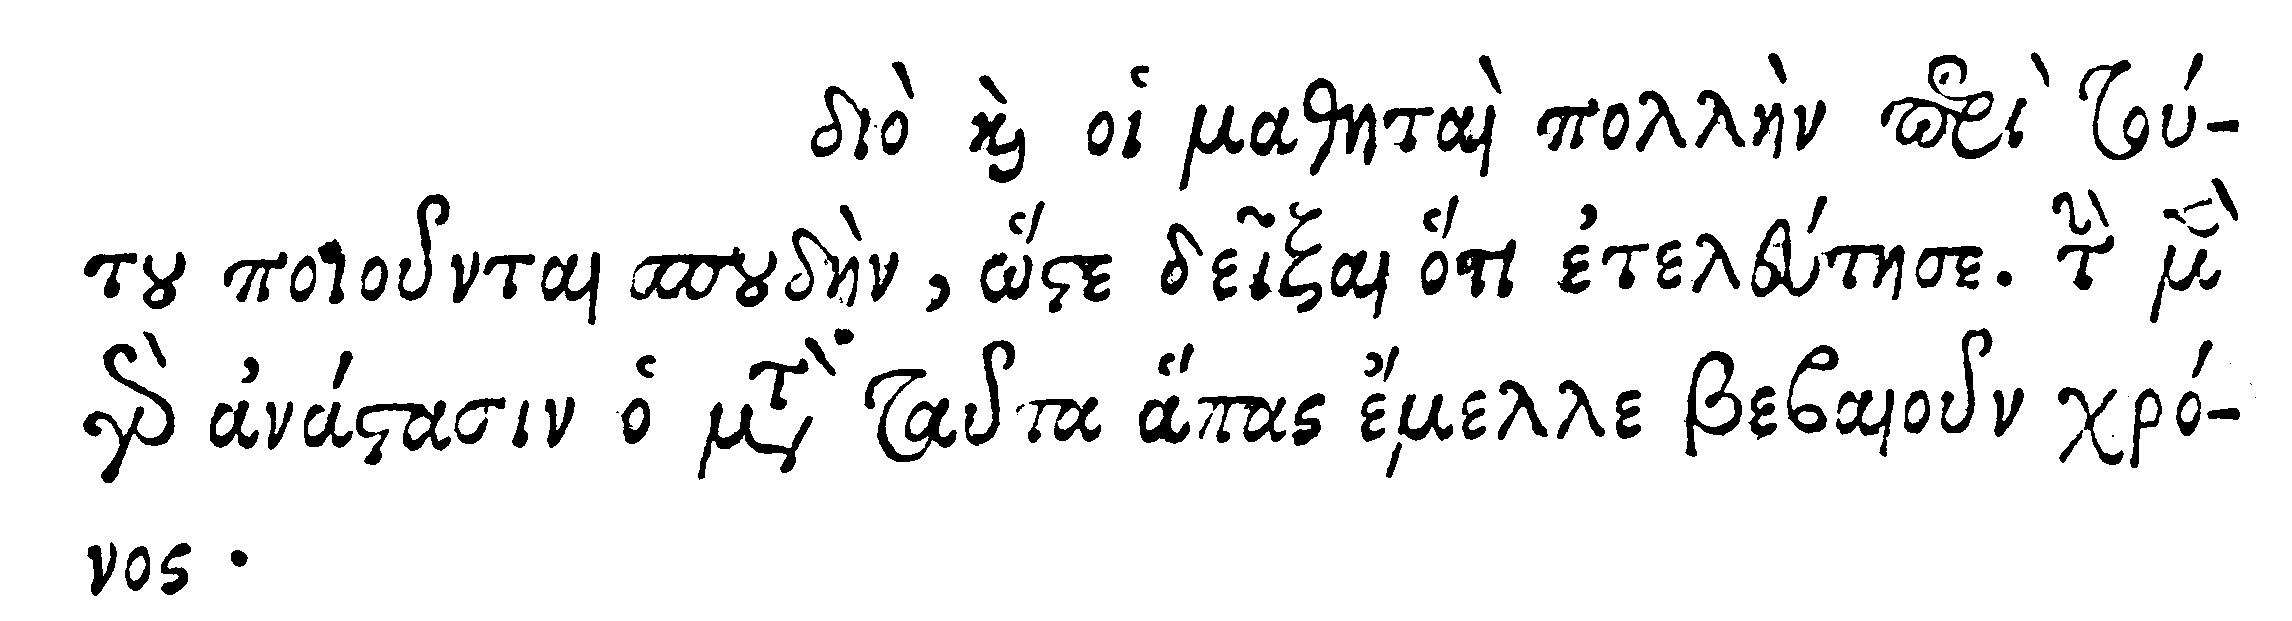 διὸ καὶ οἱ μαθηταὶ πολλὴν περὶ τού-
του ποιοῦνται σπουδὴν, ὥστε δεῖξαι ὅτι ἐτελεύτησε. τὴν μὲν
γὰρ ἀνάστασιν ὁ μετὰ ταῦτα ἅπας ἔμελλε βεβαιοῦν χρό-
νος.